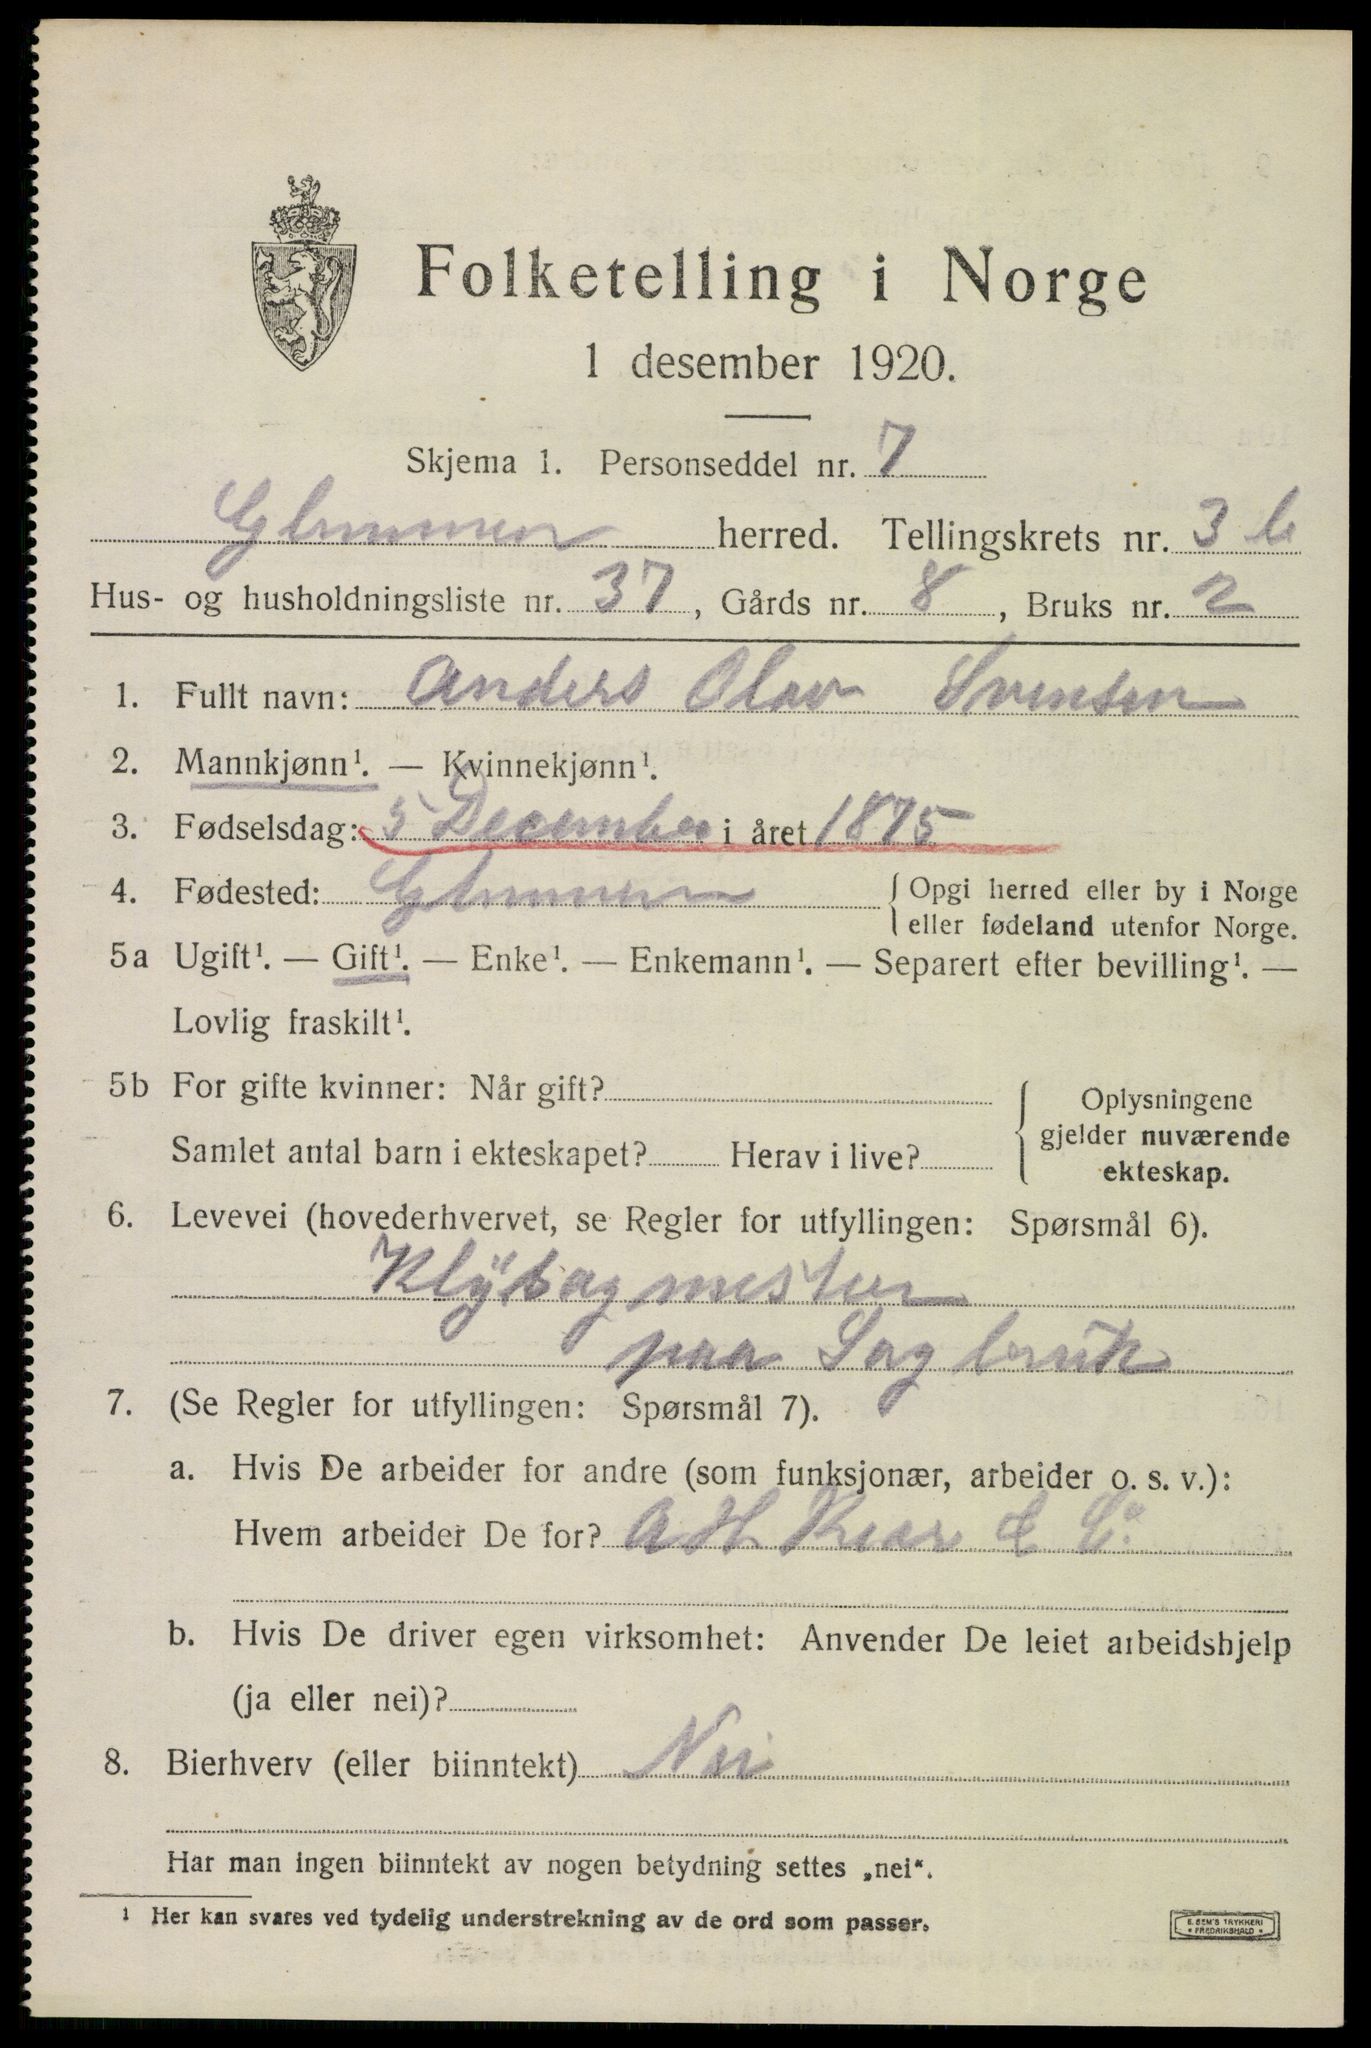 Folketelling i Norge
1 desember 1920.
Skjema 1. Personseddel nr. 7
Glemmen herred. Tellingskrets nr. 3 b
Hus- og husholdningsliste nr. 37, Gårds nr. 8, Bruks nr. 2
1. Fullt navn: Anders Olav Svensen
2. Mannkjønn¹. — Kvinnekjønn¹.
3. Fødselsdag: 5 December i året 1875
4. Fødested: Glemmen { Opgi herred eller by i Norge
eller fødeland utenfor Norge.
5a Ugift¹. — Gift¹. — Enke¹. — Enkemann¹. — Separert efter bevilling¹. —
Lovlig fraskilt¹.
5b For gifte kvinner: Når gift?
Samlet antal barn i ekteskapet? Herav i live?
{ Oplysningene
gjelder nuværende
ekteskap.
6. Levevei (hovederhvervet, se Regler for utfyllingen: Spørsmål 6).
Klÿvsagmester
paa Sagbruk
7. (Se Regler for utfyllingen: Spørsmål 7).
a. Hvis De arbeider for andre (som funksjonær, arbeider o. s. v.):
Hvem arbeider De for? A H Kiær & Co.
b. Hvis De driver egen virksomhet: Anvender De leiet arbeidshjelp
(ja eller nei)?
8. Bierhverv (eller biinntekt) Nei
Har man ingen biinntekt av nogen betydning settes „nei“.
¹ Her kan svares ved tydelig understrekning av de ord som passer.
E. SEM'S TRYKKERI
* FREDRIKSHALD *